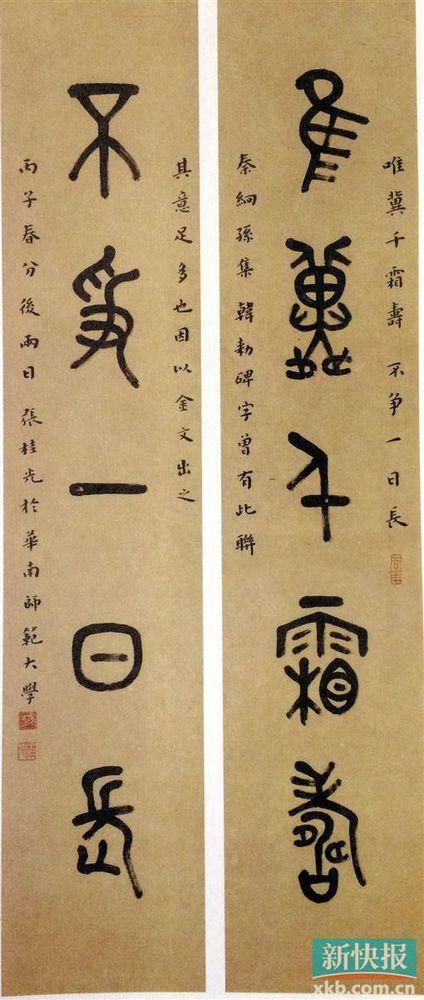 唯冀千霜壽 不争一日長
隹冀千霜壽
秦絅孫集韓勑碑字曾有此聯
其意足多也因以金文出之
不爭一日長
丙子春分後兩日張桂光於華南師範大學
新快报
xkb.com.cn